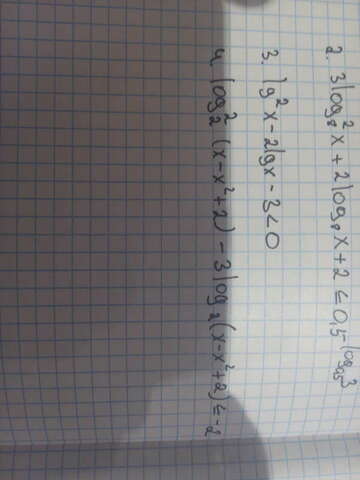 2. 3log₈²x + 2log₈x + 2 ≤ 0,5^(log₀,₅3)
3. lg²x - 2lgx - 3 < 0
4. log₂²(x - x² + 2) - 3log₂(x - x² + 2) ≤ -2